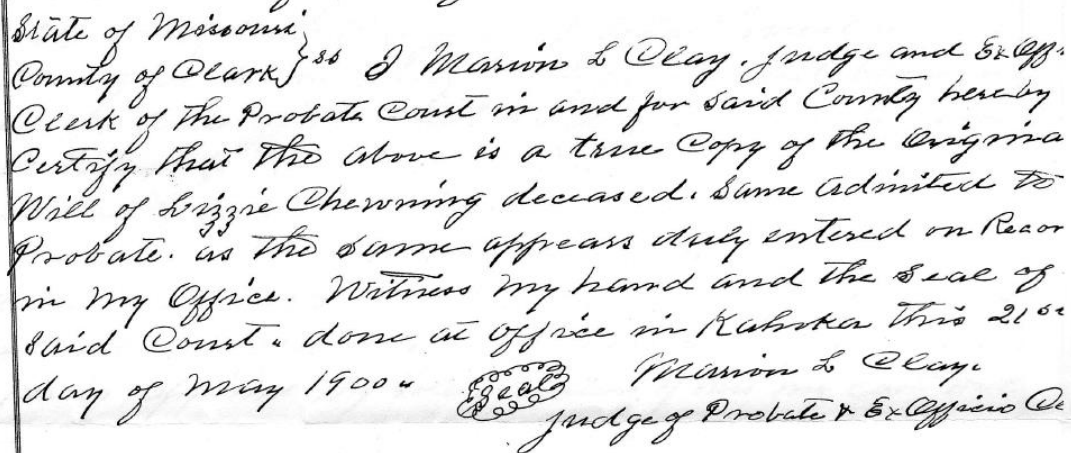 State of Missouri
County of Clark } ss I Marion L Clay. Judge and Ex Off
Clerk of the Probate Court in and for said County hereby
Certify that the above is a true Copy of the Origina
Will of Lizzie Chewning deceased. Same admited to
Probate. as the same appears duly entered on Recor
in my Office. Witness my hand and the Seal of
said Court. done at office in Kahoka this 21st
day of May 1900. Seal Marion L Clay.
Judge of Probate & Ex Officio Cl